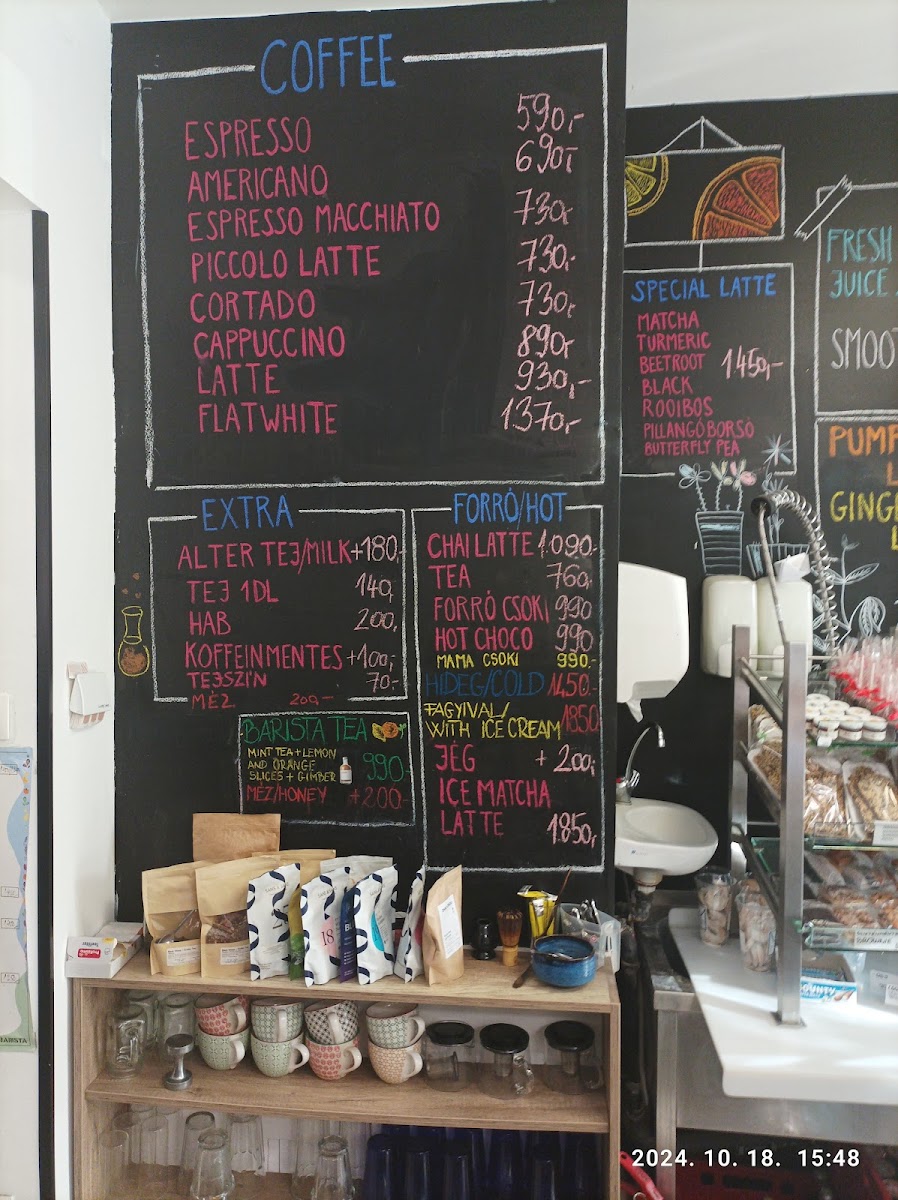 COFFEE
ESPRESSO 590,-
AMERICANO 690,-
ESPRESSO MACCHIATO 730,-
PICCOLO LATTE 730,-
CORTADO 730,-
CAPPUCCINO 890,-
LATTE 930,-
FLATWHITE 1370,-
EXTRA
ALTER TEJ/MILK +180,-
TEJ 1DL 140,-
HAB 200,-
KOFFEINMENTES +100,-
TEJSZÍN 70,-
MÉZ 200,-
BARISTA TEA
MINT TEA + LEMON
AND ORANGE
SLICES + GIMBER 990,-
MÉZ/HONEY +200,-
FORRÓ/HOT
CHAI LATTE 1.090,-
TEA 760,-
FORRÓ CSOKI 990
HOT CHOCO 990
MAMA CSOKI 990,-
HIDEG/COLD 1450,-
FAGYIVAL/
WITH ICE CREAM 1850
JÉG + 200,-
ICE MATCHA
LATTE 1850,-
SPECIAL LATTE
MATCHA
TURMERIC
BEETROOT 1450,-
BLACK
ROOIBOS
PILLANGÓBORSÓ
BUTTERFLY PEA
FRESH
JUICE
SMOO
PUM
GING
18
BOUNTY
BARISTA
2024. 10. 18. 15:48